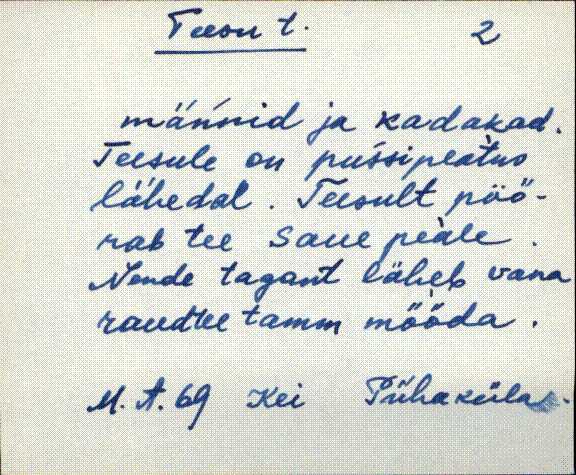 Teesu t. 2
männid ja kadakad.
Teesule on pussipeatus
lähedal. Teesult pöö-
rab tee Saue peale.
Nende tagant läheb vana
raudtee tamm mööda.
M. A. 69 Kei Pühaküla.